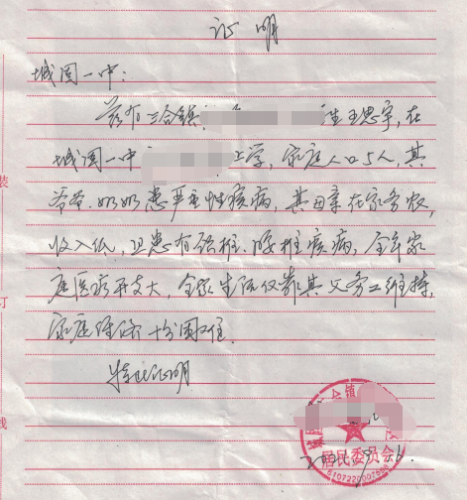 证明
城固一中：
兹有三合镇 生王思宇，在
城固一中 上学，家庭人口5人，其
爷爷、奶奶患严重性疾病，其母亲在家务农，
收入低，且患有颈椎、腰椎疾病，全年家
庭医疗开支大，全家生活仅靠其父务工维持，
家庭经济十分困难。
特此证明
装
订
线
居民委员会